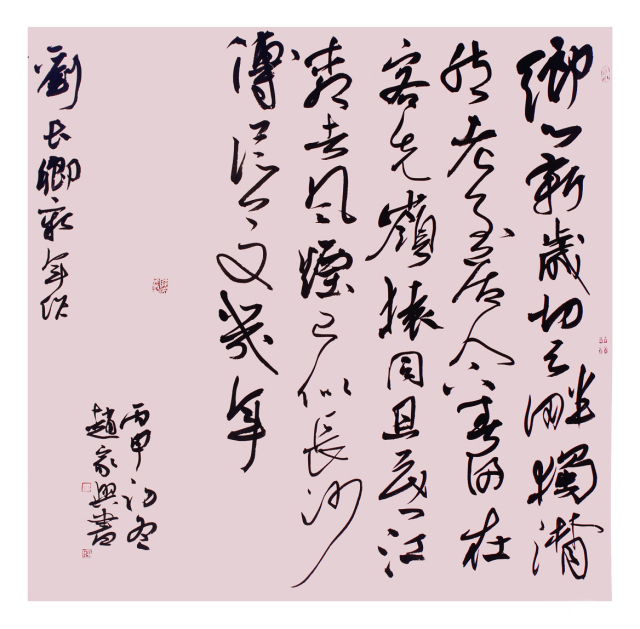 鄉心新歲切天畔獨潸
然老至居人下春歸在
客先嶺猿同旦暮江
柳共風煙已似長沙
傅從今又幾年
劉長卿新年作
丙申初冬
趙家興書